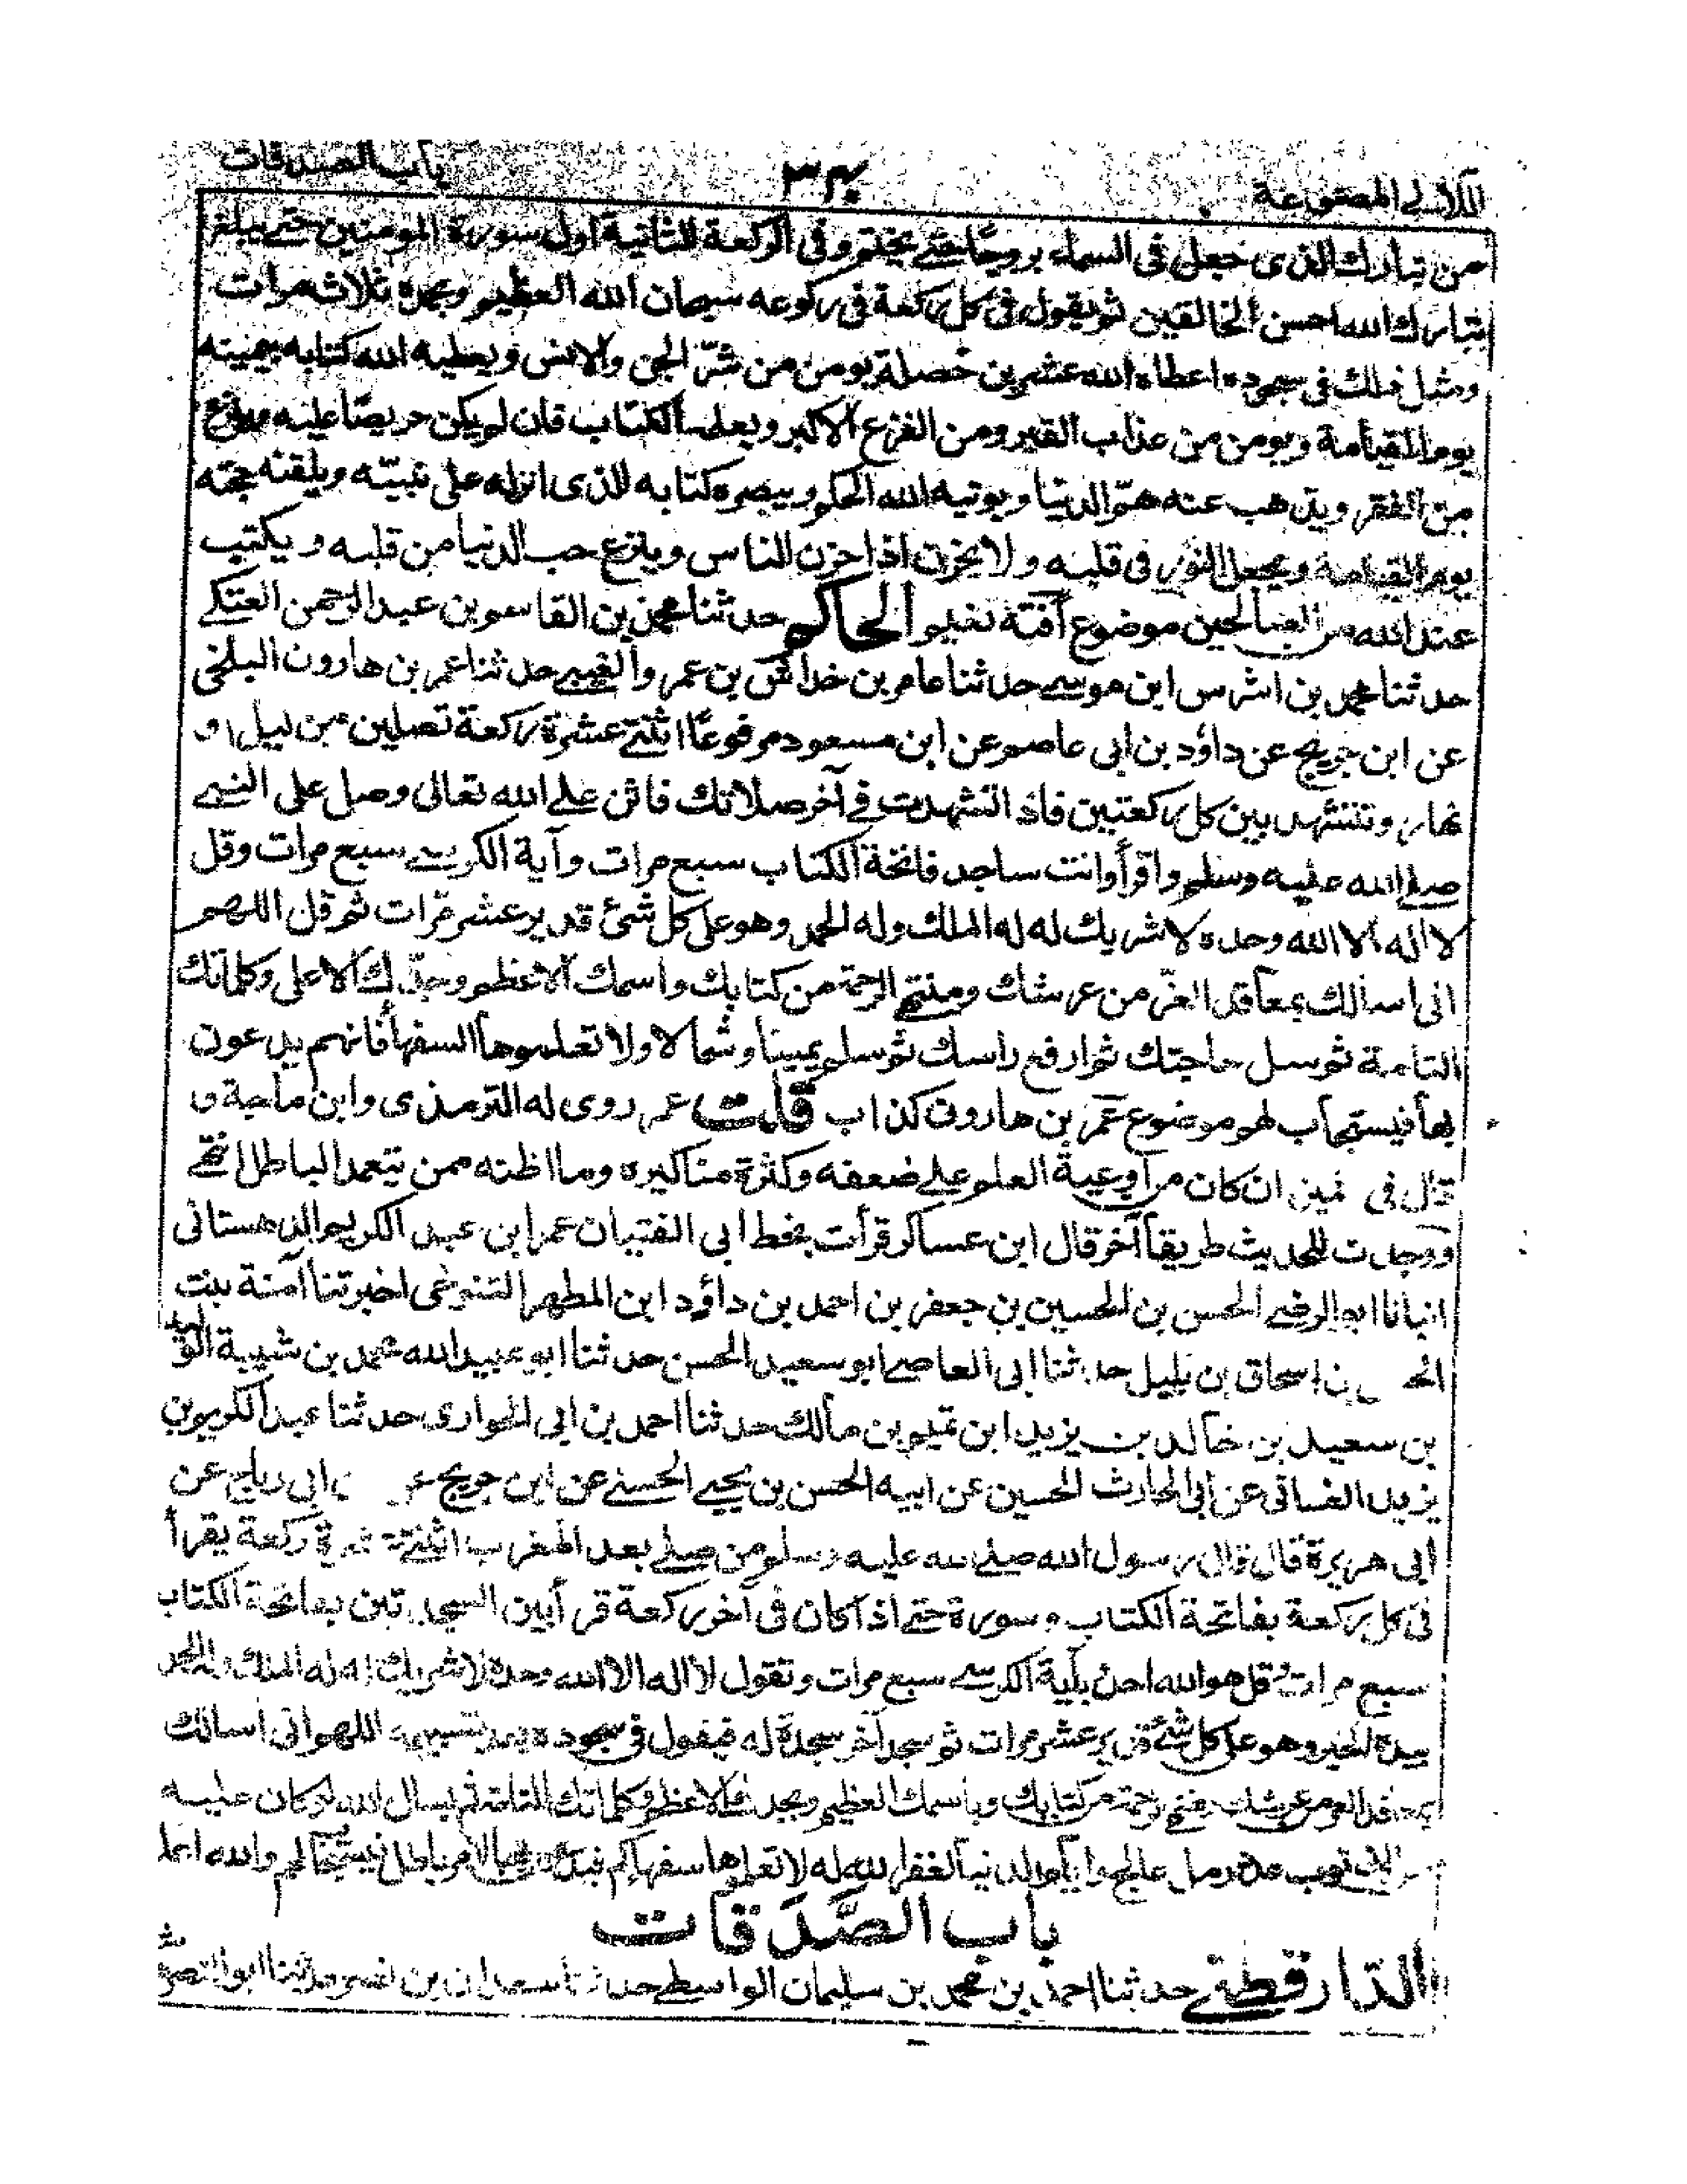 اللآلى المصنوعة ٣٤ باب الصدقات
من تبارك الذى جعل فى السماء بروجًا حتے يختم وفى الركعة الثانية اول سورة المومنين حتے يبلغ
تبارك الله احسن الخالقين ثم يقول فى كل ركعة فى ركوعه سبحان الله العظيم وبحمده ثلاث مرات
ومثل ذلك فى سجوده اعطاه الله عشرين خصلة يومن من شرّ الجن والانس ويعطيه الله كتابه بيمينه
يوم القيامة ويومن من عذاب القبر ومن الفزع الاكبر ويعلمه الكتاب فان لم يكن حريصًا عليه وينزع
من الفقر ويذهب عنه همّ الدنيا ويوتيه الله الحكم ويبصره كتابه الذى انزله على نبيّه ويلقنه حجته
يوم القيامة ويجعل النور فى قلبه ولا يحزن اذا حزن الناس وينزع حب الدنيا من قلبه ويكتب
عند الله من الصالحين موضوع آفته نعيم الحاكم حدثنا محمد بن القاسم بن عبد الرحمن العتكے
حدثنا محمد بن اشرس ابن موسے حدثنا عامر بن خداش بن عمر حدثنا عمر بن هارون البلخى
عن ابن جريج عن داؤد بن ابى عاصم عن ابن مسعود مرفوعًا اثنتے عشرة ركعة تصلين من ليل او
نهار وتتشهد بين كل ركعتين فاذا تشهدت فے آخر صلاتك فاثن علے الله تعالى وصل على النبے
صلے الله عليه وسلم واقرأ وانت ساجد فاتحة الكتاب سبع مرات وآية الكرسے سبع مرات وقل
لا اله الا الله وحده لا شريك له له الملك وله الحمد وهو على كل شئ قدير عشر مرّات ثم قل اللهم
انى اسألك بمعاقد العزّ من عرشك ومنتهى الرحمة من كتابك واسمك الاعظم وجدّك الاعلى وكلماتك
التامة ثم سل حاجتك ثم ارفع راسك ثم سلم يمينا وشمالا ولا تعلموها السفهاء فانهم يدعون
بها فيستجاب لهم موضوع عمر بن هارون كذاب قلت عمر روى له الترمذى وابن ماجة و
قال فى ان كان من اوعية العلم علے ضعفه وكثرة مناكيره وما اظنه ممن يتعمد الباطل انتهے
ووجدت للحديث طريقا آخر قال ابن عساكر قرأت بخط ابى الفتيان عمر ابن عبد الكريم الدهستانى
انبانا ابو الرضے الحسن بن الحسين بن جعفر بن احمد بن داؤد ابن المطهر التنوخى اخبرتنا آمنة بنت
بن اسحاق بن بليل حدثنا ابى العاصے ابو سعيد الحسن حدثنا ابو عبيد الله محمد بن شيبة
بن سعيد بن خالد بن يزيد ابن تميم بن مالك حدثنا احمد بن ابى الحوارى حدثنا عبد الكريم بن
يزيد الغسانى عن ابى الحارث الحسين عن ابيه الحسن بن يحيے الحسنے عن ابن جريج ابى رباح عن
ابى هريرة قال قال رسول الله صلے الله عليه وسلم من صلے بعد المغرب اثنتے ركعة يقرأ
فى كل ركعة بفاتحة الكتاب وسورة حتے اذا كان فى آخر ركعة قرأ بين السجدتين بفاتحة الكتاب
سبع مرات وقل هو الله احد بآية الكرسے سبع مرات وتقول لا اله الا الله وحده لا شريك له له الملك وله الحمد
بيده الخير وهو على كل شئ قدير عشر مرات ثم سجد آخر سجدة له فيقول فى سجوده بعد تسبيحه اللهم انى اسالك
بمعاقد العز من عرشك ومنتهى رحمة من كتابك وباسمك العظيم وكلماتك التامة ثم يسال الله لو كان عليه
من الذنوب عدد رمل عالج وايام الدنيا لغفر الله له لا تعلموها سفهاءكم فيستجاب لهم والله اعلم
باب الصَّدَقَات
الدارقطنے حدثنا احمد بن محمد بن سليمان الواسطے حدثنا سعدان بن نصر حدثنا ابو النصر